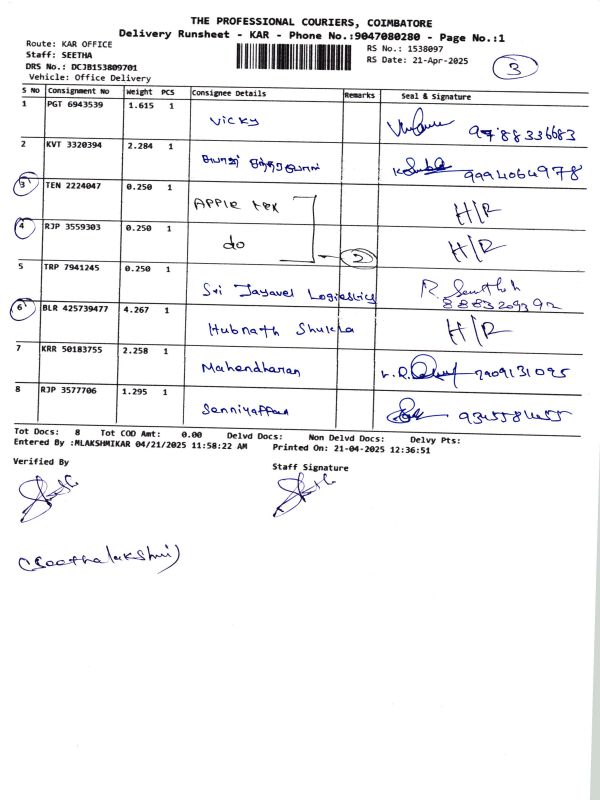 THE PROFESSIONAL COURIERS, COIMBATORE
Delivery Runsheet - KAR - Phone No.:9047080280 - Page No.:1
Route: KAR OFFICE
Staff: SEETHA
DRS No.: DCJB153809701
Vehicle: Office Delivery
RS No.: 1538097
RS Date: 21-Apr-2025
3
S No Consignment No Weight PCS Consignee Details Remarks Seal & Signature
1 PGT 6943539 1.615 1 Vicky 9788336683
2 KVT 3320394 2.284 1 9994064978
3 TEN 2224047 0.250 1 Apple tex H/R
4 RJP 3559303 0.250 1 do 2 H/R
5 TRP 7941245 0.250 1 Sri Jayavel Logistics R. Senthil 8883209392
6 BLR 425739477 4.267 1 Hubnath Shukla H/R
7 KRR 50183755 2.258 1 Mahendharan 7909131095
8 RJP 3577706 1.295 1 Senniyappan
Tot Docs: 8 Tot COD Amt: 0.00 Delvd Docs: Non Delvd Docs: Delvy Pts:
Entered By :MLAKSHMIKAR 04/21/2025 11:58:22 AM Printed On: 21-04-2025 12:36:51
Verified By
Staff Signature
(Seethalakshmi)